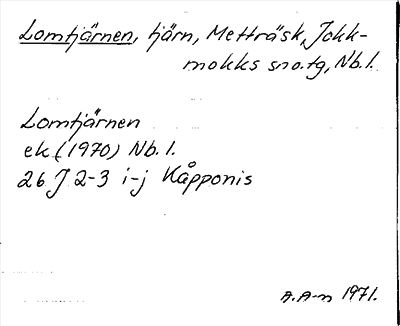 Lomtjärnen, tjärn, Metträsk, Jokk-
mokks sno.tg, Nb.l.
Lomtjärnen
ek (1970) Nb. l.
26 J 2-3 i-j Kåpponis
A. A-n 1971.